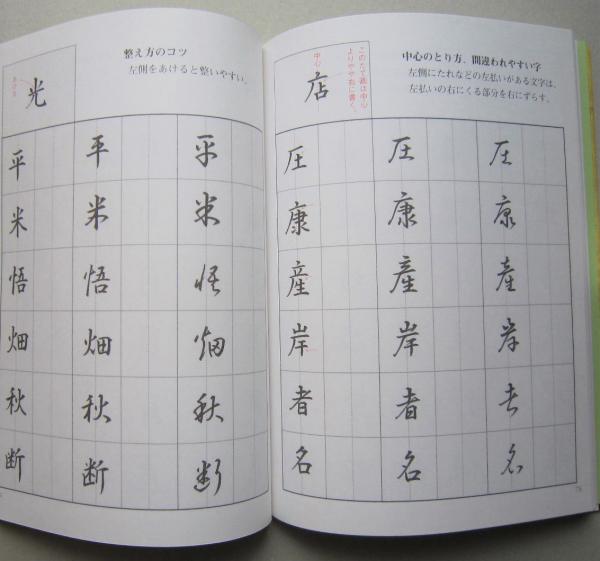 整え方のコツ
左側をあけると整いやすい。
あける
光
平 平 平
米 米 米
悟 悟 悟
畑 畑 畑
秋 秋 秋
断 断 断
中心のとり方、間違われやすい字
左側にたれなどの左払いがある文字は、
左払いの右にくる部分を右にずらす。
このたて画は中心
よりやや右に書く。
中心
店
圧 圧 圧
康 康 康
産 産 産
岸 岸 岸
者 者 者
名 名 名